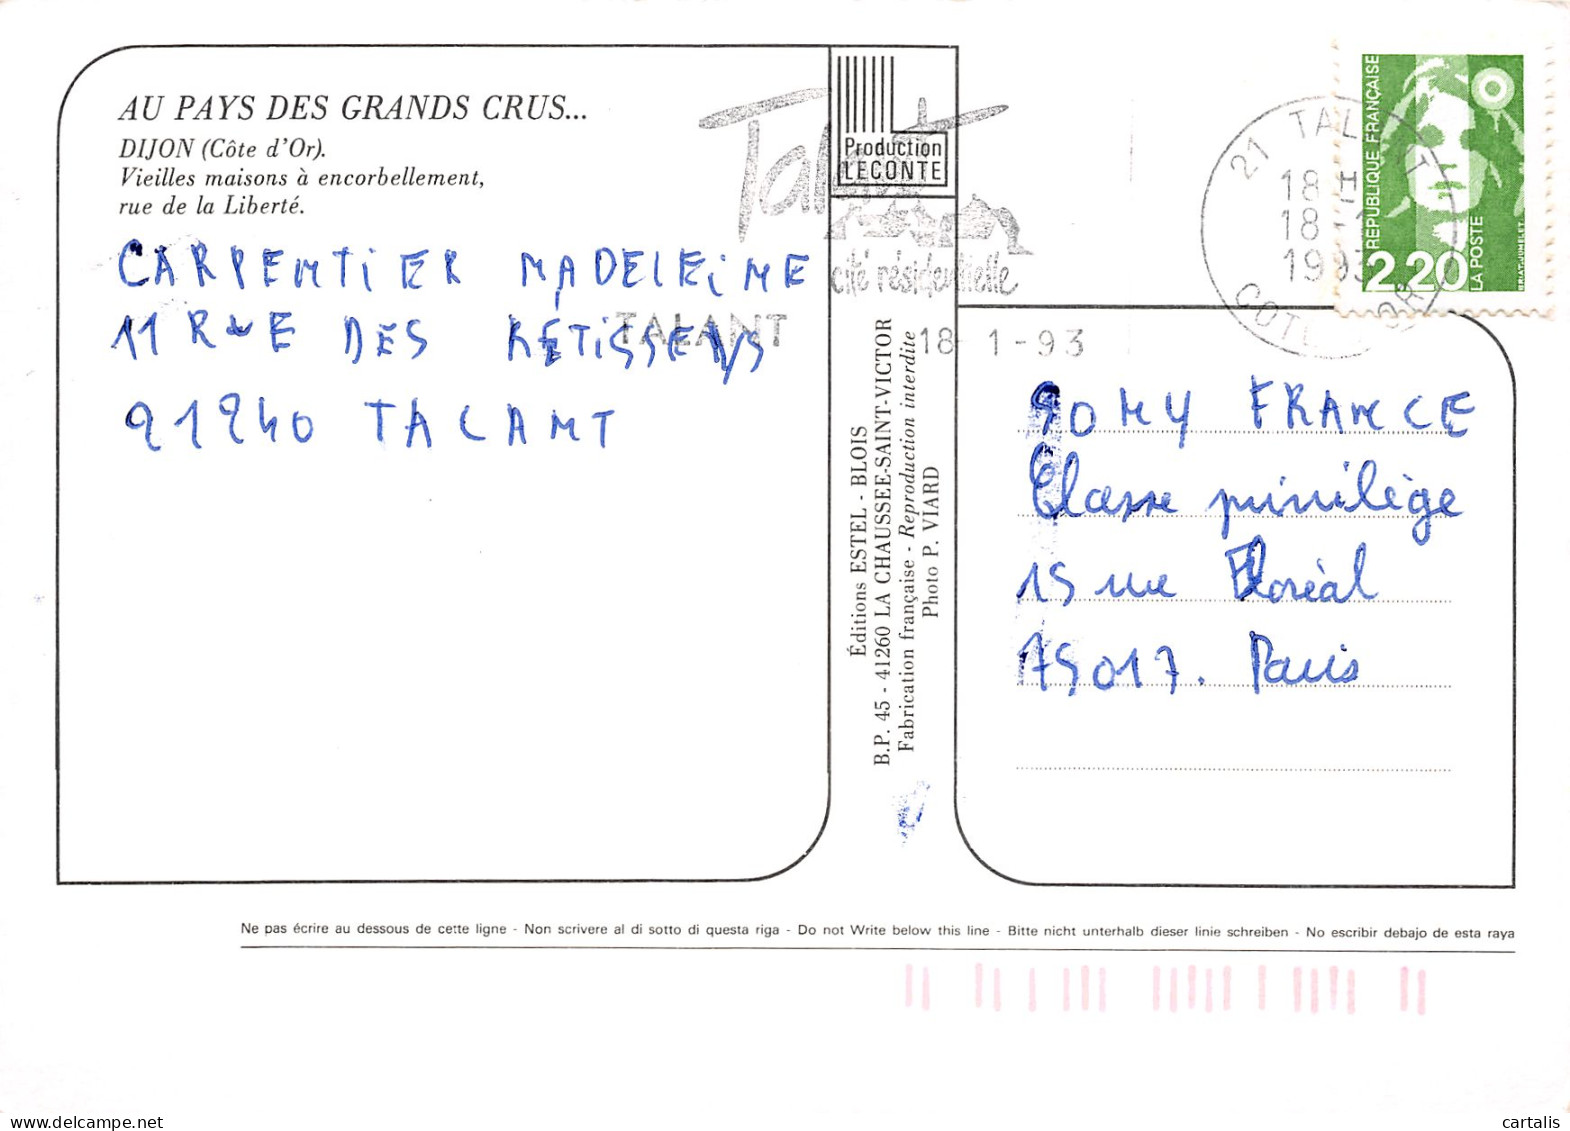 AU PAYS DES GRANDS CRUS...
DIJON (Côte d'Or).
Vieilles maisons à encorbellement,
rue de la Liberté.
CARPENTIER MADELEINE
11 RUE DES RÉTISSEYS
21240 TALANT
Production
LECONTE
Talant
cité résidentielle
TALANT
18 1-93
21 TAL T
18 H
18-1
1993
COTE D'OR
REPUBLIQUE FRANÇAISE
2,20
LA POSTE
BRIAT-JUMELET
Éditions ESTEL - BLOIS
B.P. 45 - 41260 LA CHAUSSEE-SAINT-VICTOR
Fabrication française - Reproduction interdite
Photo P. VIARD
SONY FRANCE
Classe privilège
15 rue Floréal
75017. Paris
Ne pas écrire au dessous de cette ligne - Non scrivere al di sotto di questa riga - Do not Write below this line - Bitte nicht unterhalb dieser linie schreiben - No escribir debajo de esta raya
cartalis